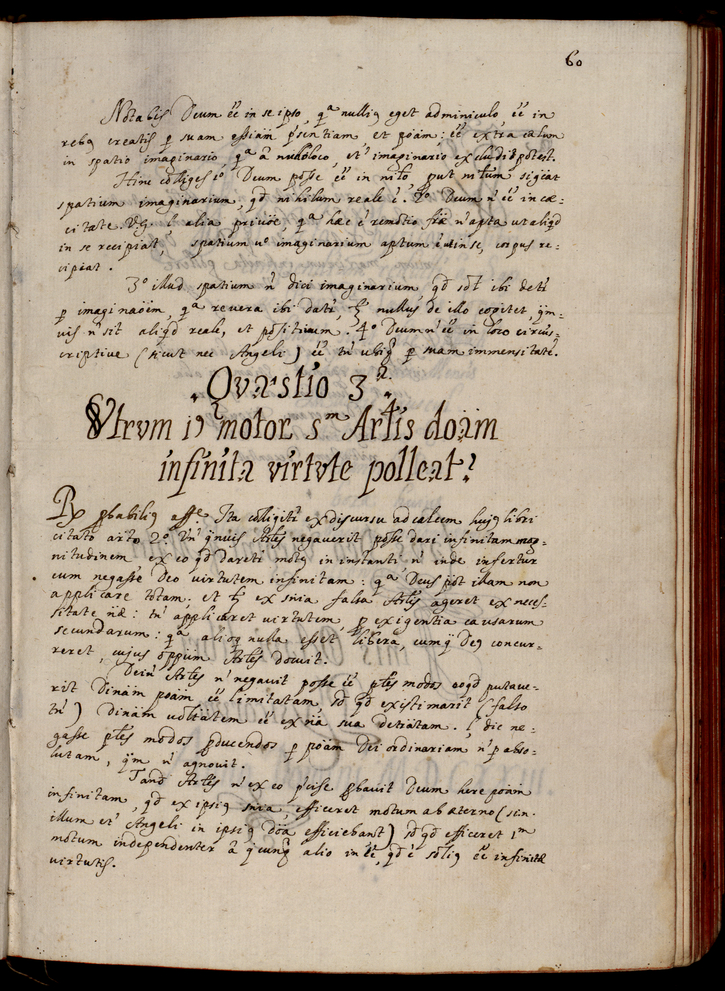 60
Nota bis Deum ēē in se ipso, qᵃ nulliq eget adminiculo ēē in
rebq creatis p suam essiam p̄sentiam et poām; ēē extra cælum
in spatio imaginario, qᵃ â nullo loco, etⁱ imaginario excludi potest.
Hinc colliges 1º Deum posse ēē in
spatium imaginarium, qd nihilum reale ē. 2º Deum n̄ ēē in cæ-
citate V.G. l alia priuōe, qᵃ hæc ē remotio n̄ apta ut aliqd
in se recipiat, spatium uº imaginarium aptum in se, corpus re-
cipiat.
3º illud spatium n̄ dici imaginarium qd ibi detʳ
p imaginaōem, qᵃ revera ibi datʳ, nullus de illo cogitet, q̄m-
vis n̄ sit aliqd reale, et positiuum. 4º Deum n̄ ēē in loco circūs-
criptiue (sicut nec Angeli) ēē tn̄ ubiq p suam immensitatē.
Quæstio 3ᵃ.
Vtrvm i9 motor sᵐ Artis doām
infinita virtvte polleat?
Rx pbabiliq affe. Ita colligitʳ ex discursu ad calcem hujq libri
citato arto 2º. Vn̄ q̄uis Artēs negauerit posse dari infinitam mag-
nitudinem ex eo qd daretʳ motq in instanti n̄ inde infertur
eum negasse Deo virtutem infinitam: qᵃ Deus pōt illam non
applicare totam. et ex sn̄ia falsa Artēs ageret ex neces-
sitate næ: tn̄ applicaret virtutem p exigentia causarum
secundarum: qᵃ alioq nulla esset libera, cumq Deq concur-
reret, cujus oppūm Artēs docuit.
Dein Artēs n̄ negauit posse ēē ptēs modos eoqd putaue-
rit Dinām poām ēē limitatam, sd qd existimarit (falso
tn̄) Dinām uoltātem ēē ex nā sua detiātam. l dic ne-
gasse ptēs modos pducendos p poām Dei ordinariam n̄ p abso-
lutam, q̄m n̄ agnouit.
Tand Artēs n̄ ex eo p̄cise pbauit Deum here poām
infinitam, qd ex ipsiq sn̄ia, efficeret motum ab æterno (sin.
illum etⁱ Angeli in ipsiq doā efficiebant) sd qd efficeret 1ᵐ
motum independenter â q̄cunq alio in ēē, qd ē soliq ēē infinitæ
virtutis.